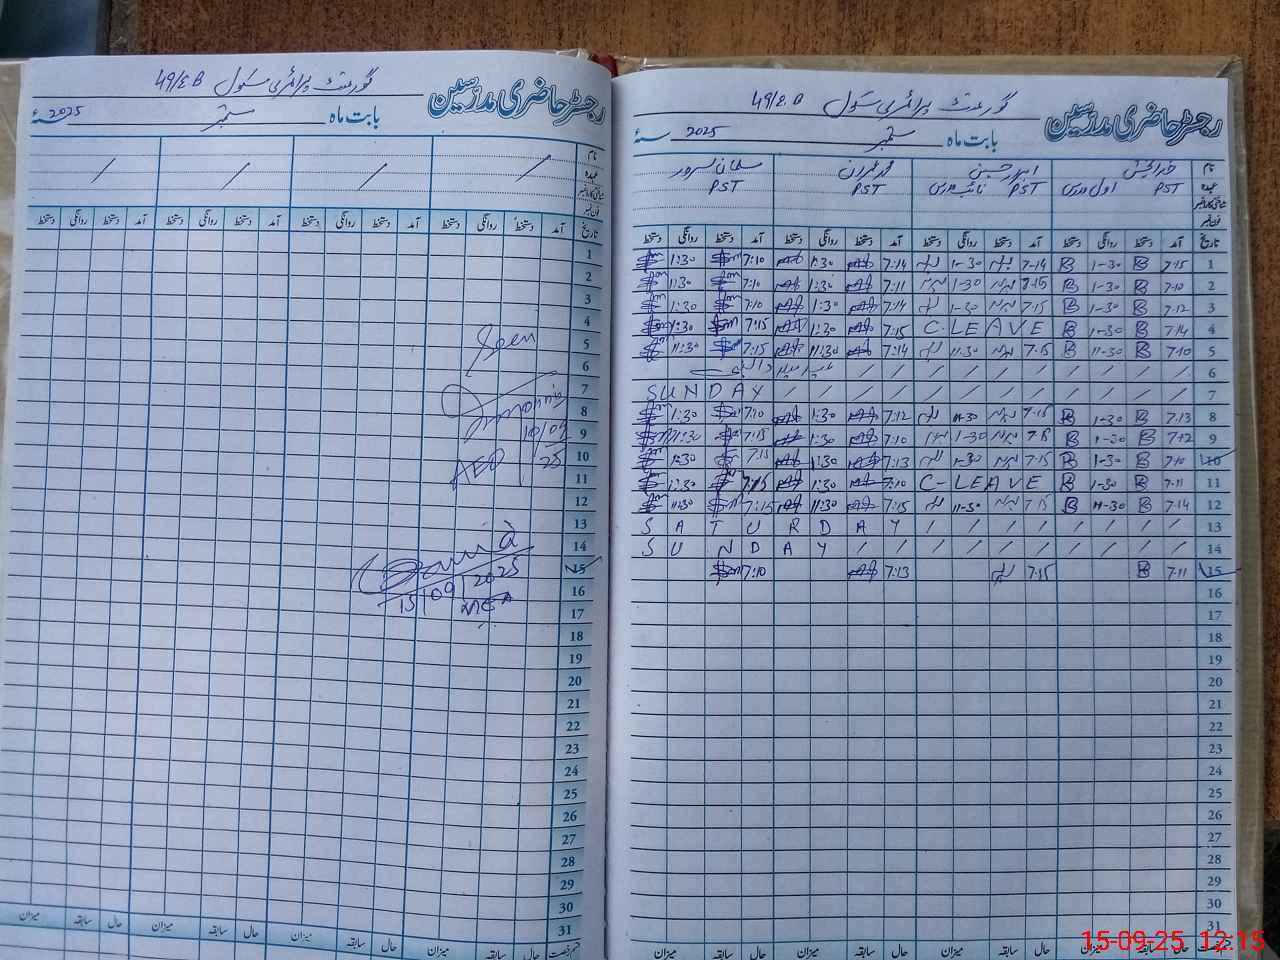 رجسٹر حاضری مدرسین گورنمنٹ پرائمری سکول 49/E.B
بابت ماہ ستمبر 2025 سنۂ
نام
عہدہ
تاریخ آمد دستخط روانگی دستخط آمد دستخط روانگی دستخط آمد دستخط روانگی دستخط آمد دستخط روانگی دستخط
1
2
3
4
5
Seen
6
7
8
9
10/09
10
AEO 25
11
12
13
14
15
15/09/2025
16
MEA
17
18
19
20
21
22
23
24
25
26
27
28
29
30
31
حال سابقہ میزان حال سابقہ میزان حال سابقہ میزان حال سابقہ میزان
رجسٹر حاضری مدرسین گورنمنٹ پرائمری سکول 49/E.B
بابت ماہ ستمبر 2025 سنۂ
نام خدا بخش امیر حسین محمد عمران سلمان سرور
عہدہ PST اول مدرس PST نائب مدرس PST PST
تاریخ آمد دستخط روانگی دستخط آمد دستخط روانگی دستخط آمد دستخط روانگی دستخط آمد دستخط روانگی دستخط
1 7:15 1-30 7-14 1-30 7:14 1:30 7:10 1:30
2 7:10 1-30 7:15 1-30 7:11 1:30 7:10 1:30
3 7:12 1-30 7:15 1-30 7:14 1:30 7:10 1:30
4 7:14 1-30 C.LEAVE 7:15 1:30 7:15 1:30
5 7:10 11-30 7:15 11-30 7:14 11:30 7:15 11:30
6
7 SUNDAY
8 7:13 1-30 7:15 7:12 1:30 7:10 1:30
9 7:12 1-30 1-30 7:10 1:30 7:15 1:30
10 7:10 1-30 7:15 1-30 7:13 1:30 7:15 1:30
11 7:11 1-30 C-LEAVE 7:10 1:30 7:15 1:30
12 7:14 11-30 7:15 11-30 7:15 11:30 7:15 11:30
13 SATURDAY
14 SUNDAY
15 7:11 7:15 7:13 7:10
16
17
18
19
20
21
22
23
24
25
26
27
28
29
30
31
حال سابقہ میزان حال سابقہ میزان حال سابقہ میزان
15-09-25 12:15